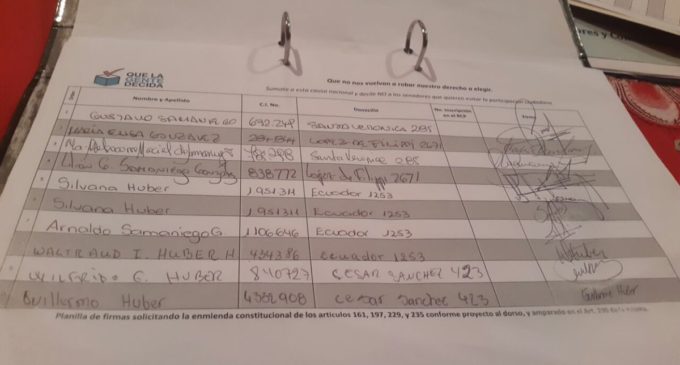 QUE LA
GENTE
DECIDA
Que no nos vuelvan a robar nuestro derecho a elegir.
Sumate a esta causa nacional y desde NO a los senadores que quieren evitar la participación ciudadana.
Nombre y Apellido C.I. No. Domicilio No. Inscripción en el RCP Firma
GUSTAVO SAMANIEGO 692.248 SANTA VERONICA 285
MARIA ELISA GONZALEZ LOPEZ DE FILIPPI 2671
285
838772 Lopez de Filippi 2671
Silvana Huber 1951311 Ecuador 1253
Silvana Huber 1951311 Ecuador 1253
Arnaldo Samaniego G. 1106646 Ecuador 1253
WALTRAUD I. HUBER H. 434386 Ecuador 1253
WILFRIDO G. HUBER 840727 CESAR SANCHEZ 423
Guillermo Huber 4352908 Cesar Sanchez 423
Guillermo Huber
Planilla de firmas solicitando la enmienda constitucional de los artículos 161, 197, 229, y 235 conforme proyecto al dorso, y amparado en el Art. 290